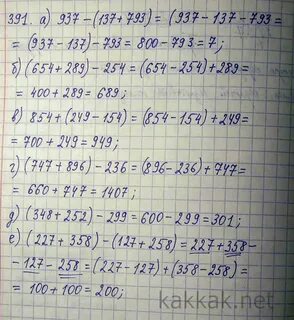 391. а) 937-(137+793)=(937-137-793=
=(937-137)-793=800-793=7;
б) (654+289)-254=(654-254)+289=
=400+289=689;
в) 854+(249-154)=(854-154)+249=
=700+249=949;
г) (747+896)-236=(896-236)+747=
=660+747=1407;
д) (348+252)-299=600-299=301;
е) (227+358)-(127+258)=227+358-
-127-258=(227-127)+(358-258)=
=100+100=200;
kakkak.net